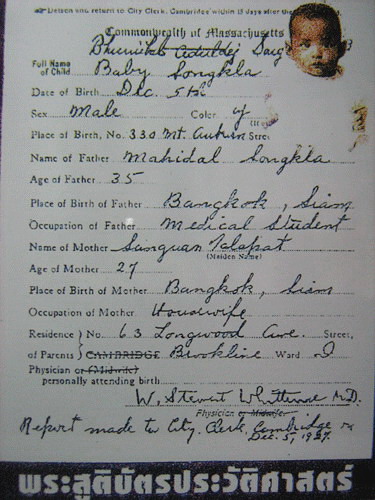 return to City Clerk, Cambridge within 15 days after the
Commonwealth of Massachusetts
Bhumibol Aduldej
Full Name of Child Baby Songkla
Date of Birth Dec. 5th
Sex Male Color y
Place of Birth, No. 330 Mt. Auburn Street
Name of Father Mahidol Songkla
Age of Father 35
Place of Birth of Father Bangkok, Siam
Occupation of Father Medical Student
Name of Mother Sanguan Talapat
(Maiden Name)
Age of Mother 27
Place of Birth of Mother Bangkok, Siam
Occupation of Mother Housewife
Residence No. 63 Longwood Ave. Street,
of Parents CAMBRIDGE Brookline Ward
Physician or (Midwife)
personally attending birth
W. Stewart Whittemore M.D.
Physician or Midwife
Report made to City Clerk, Cambridge
Dec. 5, 1927.
พระสูติบัตรประวัติศาสตร์